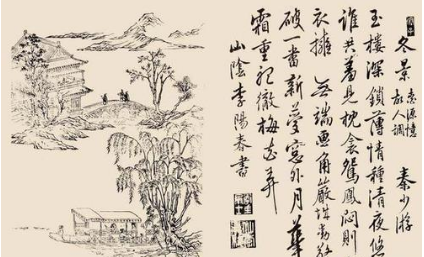 冬景
桃源憶
故人調
秦少游
玉樓深鎖薄情種清夜悠
誰共羞見枕衾鴛鳳悶則
衣擁無端畫角嚴城動
破一番新夢窗外月華
霜重聽徹梅花弄
山陰李陽春書